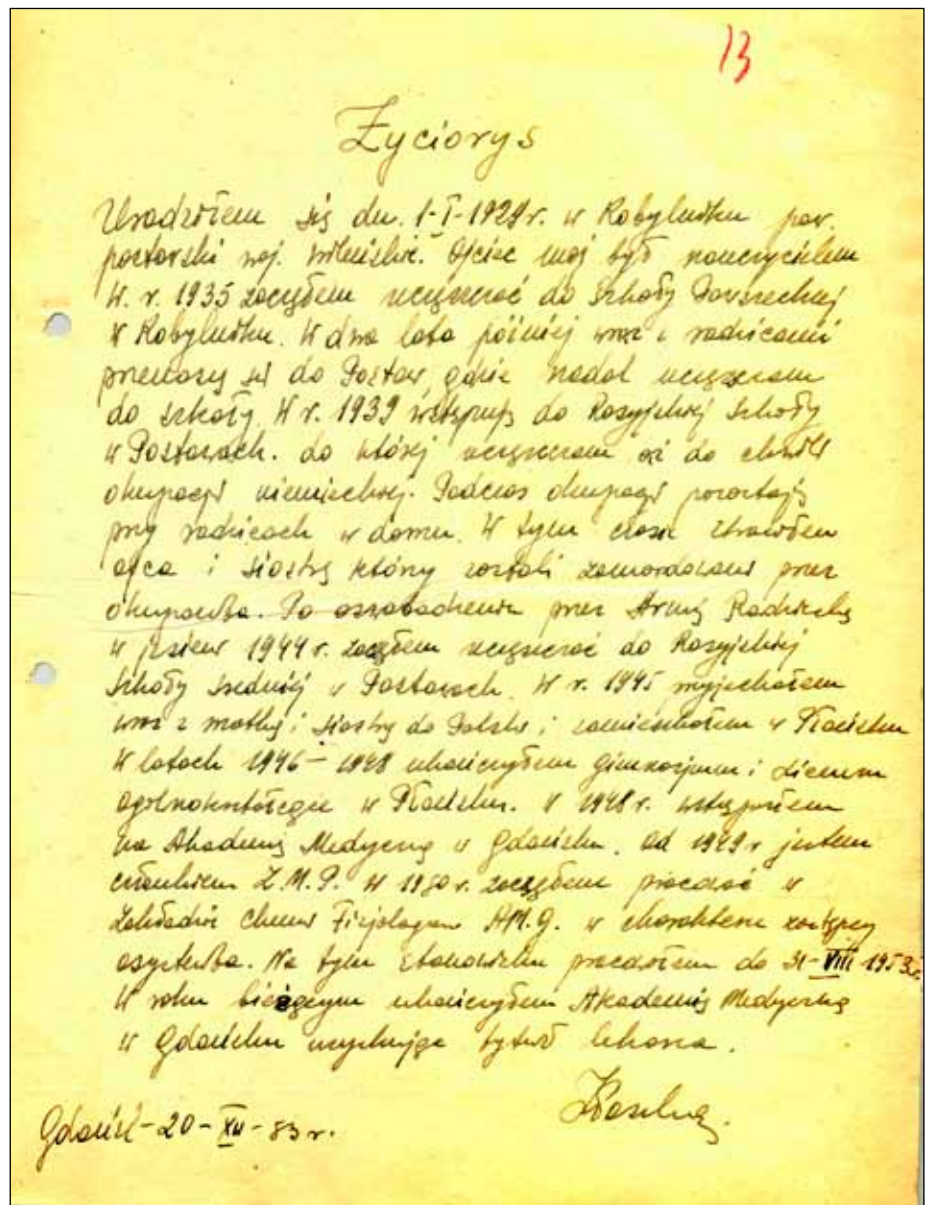 13
Życiorys
Urodziłem się dn. 1-I-1929 r. w Kobylniku pow.
postawski woj. wileńskie. Ojciec mój był nauczycielem
W. r. 1935 zacząłem uczęszczać do Szkoły Powszechnej
w Kobylniku. W dwa lata później wraz z rodzicami
przenoszę się do Postaw, gdzie nadal uczęszczam
do szkoły. W r. 1939 wstępuję do Rosyjskiej Szkoły
w Postawach. do której uczęszczam aż do chwili
okupacji niemieckiej. Podczas okupacji pozostaję
przy rodzicach w domu. W tym czasie straciłem
ojca i siostrę który zostali zamordowani przez
okupanta. Po oswobodzeniu przez Armię Radziecką
w jesieni 1944 r. zacząłem uczęszczać do Rosyjskiej
Szkoły średniej w Postawach. W r. 1945 wyjechałem
wraz z matką i siostrą do Polski i zamieszkałem w Płońsku
W latach 1946 – 1948 ukończyłem gimnazjum i Liceum
ogólnokształcące w Płońsku. W 1948 r. wstąpiłem
na Akademię Medyczną w Gdańsku. od 1949 r jestem
członkiem Z.M.P. W 1950 r. zacząłem pracować w
Zakładzie Chemii Fizjologicz AM.G. w charakterze zastępcy
asystenta. Na tym stanowisku pracowałem do 31-VIII 1953 r.
W roku bieżącym ukończyłem Akademię Medyczną
w Gdańsku uzyskując tytuł lekarza.
Gdańsk-20-XII-53 r.